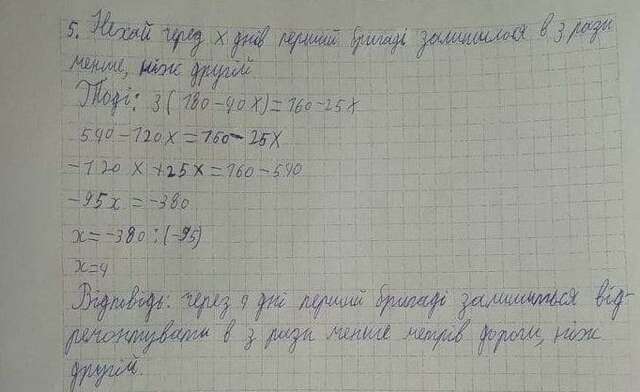 5. Нехай через x днів першій бригаді залишилося в 3 рази
менше, ніж другій
Тоді: 3(180-40x)=160-25x
540-120x=160-25x
-120x+25x=160-540
-95x=-380
x=-380:(-95)
x=4
Відповідь: через 4 дні першій бригаді залишиться від-
ремонтувати в 3 рази менше метрів дороги, ніж
другій.